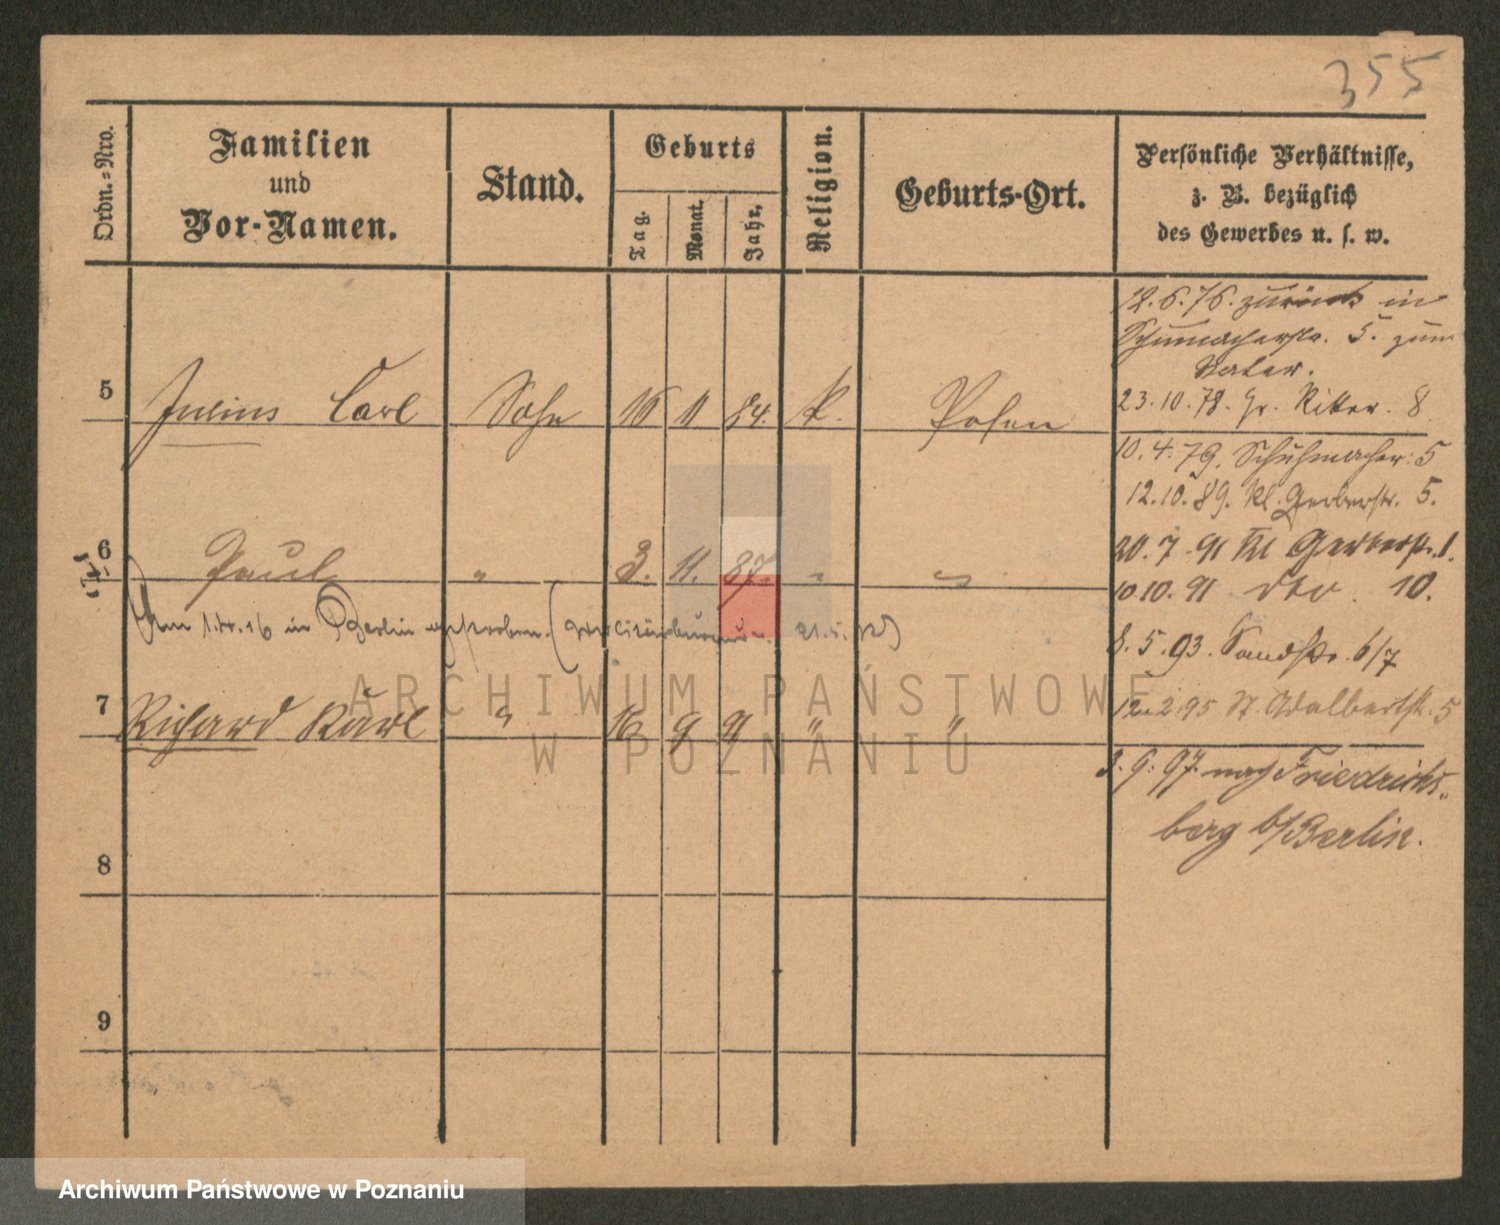 355
Ordn.=Nro.
Familien
und
Vor-Namen.
Stand.
Geburts
Tag.
Monat.
Jahr.
Religion.
Geburts-Ort.
Persönliche Verhältnisse,
z. B. bezüglich
des Gewerbes u. s. w.
12.6.76. zurück in
Schumacherstr. 5. zum
Vater.
5 Julius Carl Sohn 16 11 84. k. Posen
23.10.78. Gr. Ritter. 8
10.4.79. Schuhmacher: 5
12.10.89. Kl. Gerberstr. 5.
6 Paul " 3. 11. 87. " "
20.7.91 Kl Gerberstr. 1.
10.10.91 dto. 10.
Am in Berlin gestorben.
8.5.93. Sandstr. 6/7
7 Richard Karl " 16 9 91 " "
12.2.95 St. Adalbertstr. 5
3.9.97. nach Friedrichs-
berg b/Berlin.
8
9
ARCHIWUM PAŃSTWOWE
W POZNANIU
Archiwum Państwowe w Poznaniu